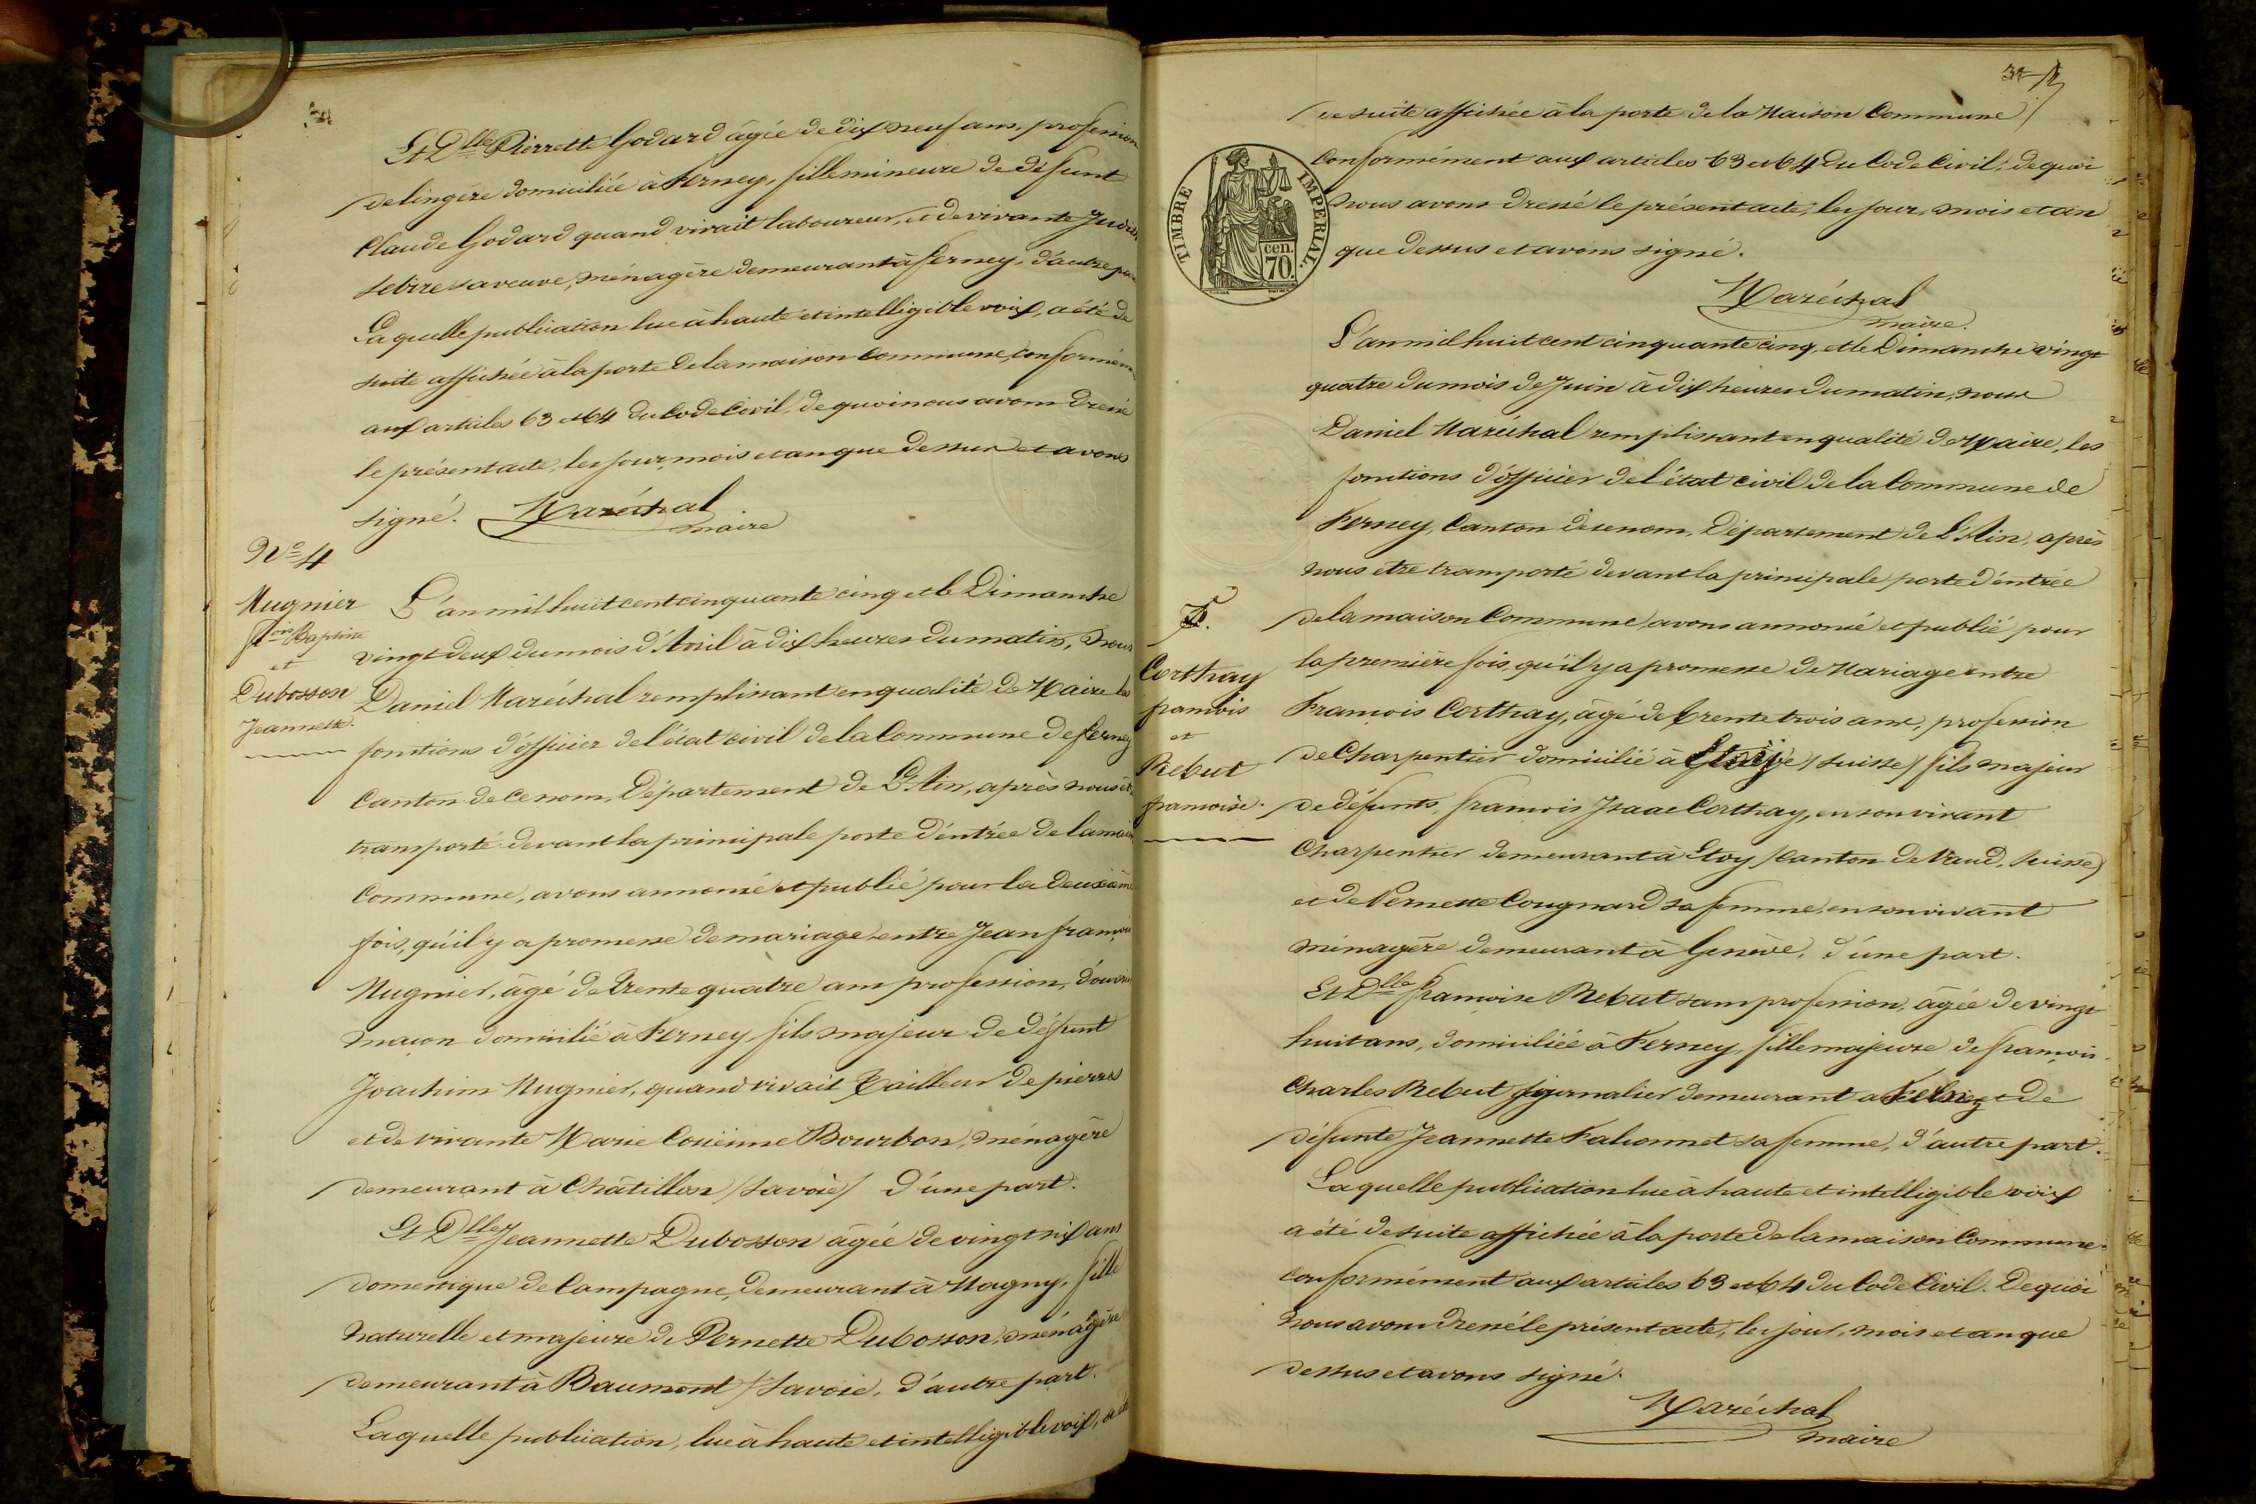 Et Dlle Pierrette Godard âgée de dix neuf ans, profession
de lingère domiciliée à Ferney, fille mineure de défunt
Claude Godard quand vivait laboureur, et de vivante
sa veuve, ménagère demeurant à Ferney, d'autre part
Laquelle publication lue à haute et intelligible voix, a été de
suite affichée à la porte de la maison Commune, conformément
aux articles 63 et 64 du Code Civil, de quoi nous avons dressé
le présent acte, les jour, mois et an que dessus et avons
signé. Maréchal
maire
No 4
Mugnier
fçois Baptiste
et
Dubosson
Jeannette.
L'an mil huit cent cinquante cinq et le Dimanche
vingt deux du mois d'Avril à dix heures du matin, Nous
Daniel Maréchal remplissant en qualité de Maire les
fonctions d'officier de l'état civil de la Commune de Ferney
Canton de ce nom, Département de L'Ain, après nous être
transporté devant la principale porte d'entrée de la maison
Commune, avons annoncé et publié pour la deuxième
fois, qu'il y a promesse de mariage entre Jean françois
Mugnier, âgé de Trente quatre ans profession, d'ouvrier
maçon domicilié à Ferney, fils majeur de défunt
Joachim Mugnier, quand vivait Tailleur de pierres
et de vivante Marie Bourbon, ménagère
demeurant à Châtillon /Savoie/ d'une part.
Et Dlle Jeannette Dubosson âgée de vingt six ans
domestique de Campagne, demeurant à Magny, fille
naturelle et majeure de Pernette Dubosson, ménagère
demeurant à Beaumont /Savoie, d'autre part.
Laquelle publication, lue à haute et intelligible voix, a été
de suite affichée à la porte de la Maison Commune
Conformément aux articles 63 et 64 du Code Civil, de quoi
nous avons dressé le présent acte, les jour, mois et an
que dessus et avons signé.
Maréchal
maire.
TIMBRE IMPERIAL.
cen.
70.
L'an mil huit cent cinquante cinq, et le Dimanche vingt
quatre du mois de Juin à dix heures du matin, nous
Daniel Maréchal remplissant en qualité de Maire, les
fonctions d'officier de l'état civil de la Commune de
Ferney, Canton de ce nom, Département de L'Ain, après
nous etre transporté devant la principale porte d'entrée
de la maison Commune, avons annoncé et publié pour
la première fois, qu'il y a promesse de Mariage entre
Corthay
françois
et
Rebut
françoise.
François Corthay, âgé de trente trois ans, profession
de Charpentier domicilié à (Suisse) fils majeur
de défunts, françois Isaac Corthay, en son vivant
Charpentier demeurant à Etoy (Canton de Vaud, Suisse)
et de Pernette Cougnard sa femme, en son vivant
ménagère demeurant à Genève, d'une part.
Et Dlle françoise Rebut sans profession, âgée de vingt
huit ans, domiciliée à Ferney, fille majeure de françois
Charles Rebut journalier demeurant a Ferney et de
défunte Jeannette Falconnet sa femme, d'autre part.
Laquelle publication lue à haute et intelligible voix
a été de suite affichée à la porte de la maison Commune
conformément aux articles 63 et 64 du Code Civil. De quoi
nous avons dressé le présent acte, les jour, mois et an que
dessus et avons signé.
Maréchal
maire